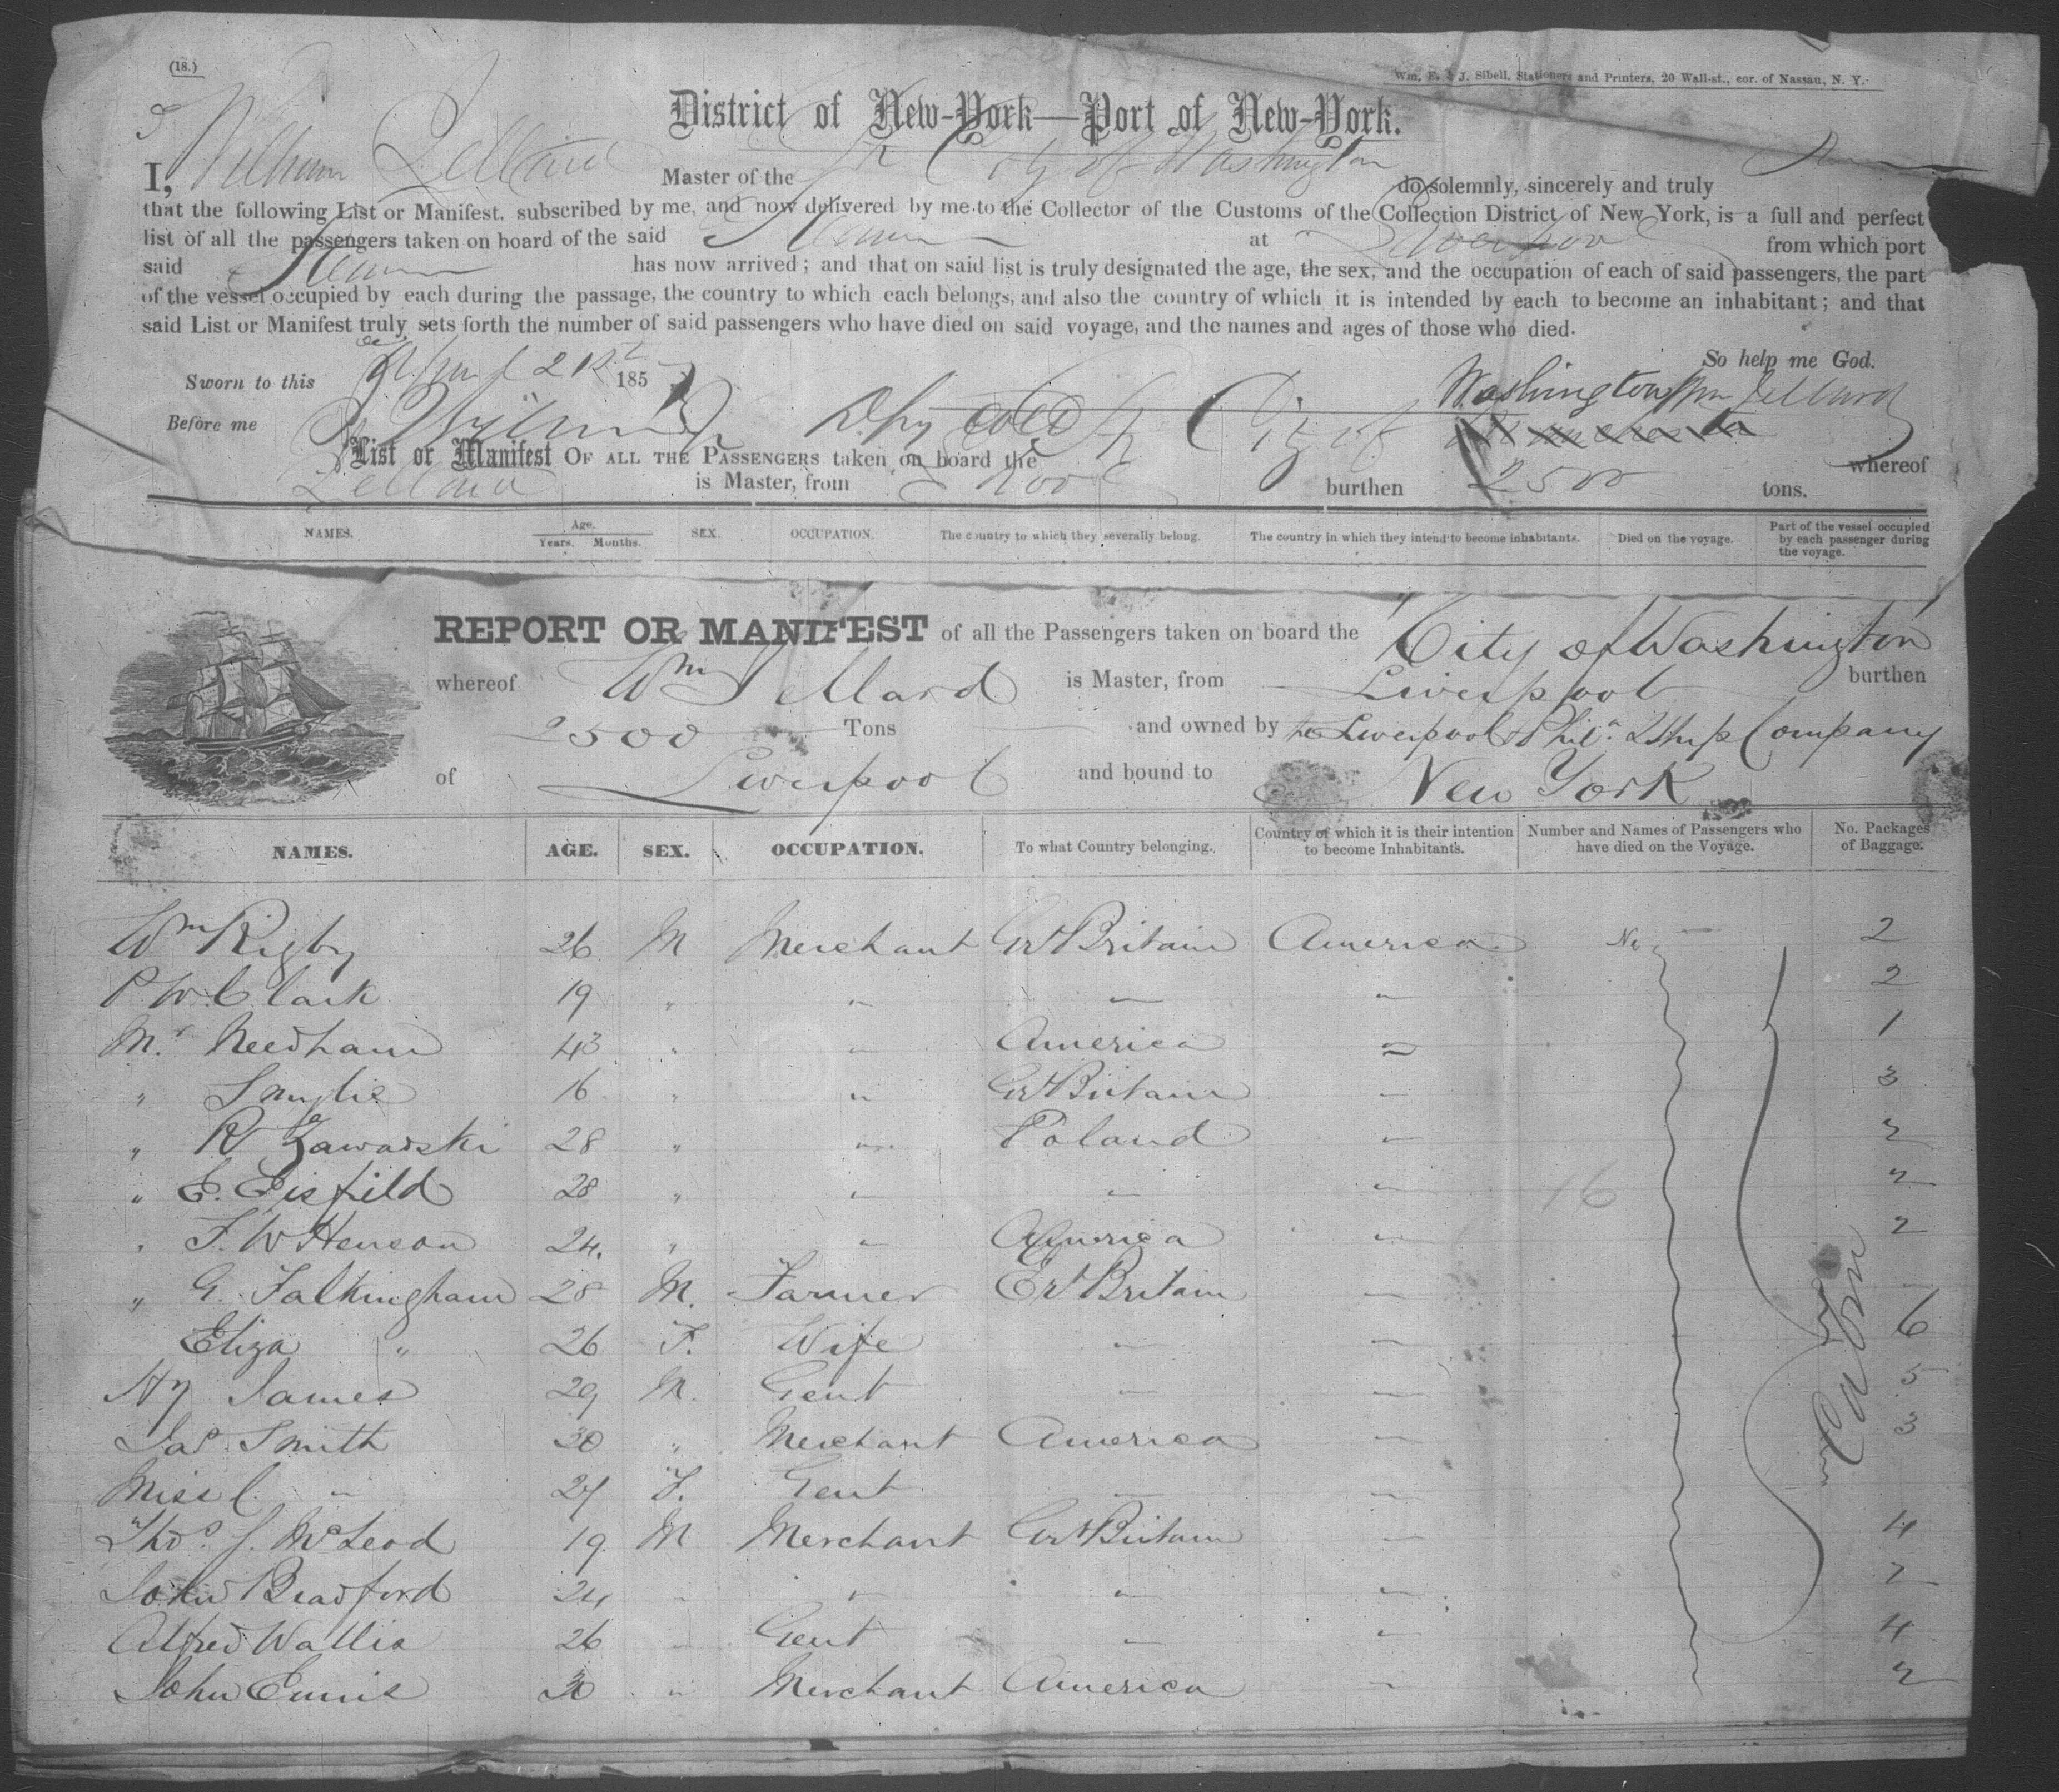 (18.)
Wm. E. & J. Sibell, Stationers and Printers, 20 Wall-st., cor. of Nassau, N. Y.
District of New-York—Port of New-York.
I, William Jellard Master of the City of Washington do solemnly, sincerely and truly
that the following List or Manifest, subscribed by me, and now delivered by me to the Collector of the Customs of the Collection District of New York, is a full and perfect
list of all the passengers taken on board of the said Steamer at Liverpool from which port
said Steamer has now arrived; and that on said list is truly designated the age, the sex, and the occupation of each of said passengers, the part
of the vessel occupied by each during the passage, the country to which each belongs, and also the country of which it is intended by each to become an inhabitant; and that
said List or Manifest truly sets forth the number of said passengers who have died on said voyage, and the names and ages of those who died.
So help me God.
Sworn to this 21st 185
Wm Jellard
Before me
Washington
List or Manifest OF ALL THE PASSENGERS taken on board the City of whereof
Jellard is Master, from burthen 2500 tons.
NAMES. Age. Years. Months. SEX. OCCUPATION. The country to which they severally belong. The country in which they intend to become inhabitants. Died on the voyage. Part of the vessel occupied by each passenger during the voyage.
REPORT OR MANIFEST of all the Passengers taken on board the City of Washington
whereof Wm Jellard is Master, from Liverpool burthen
2500 Tons and owned by the Liverpool & Phila. Company
of Liverpool and bound to New York
NAMES. AGE. SEX. OCCUPATION. To what Country belonging. Country of which it is their intention to become Inhabitants. Number and Names of Passengers who have died on the Voyage. No. Packages of Baggage.
Wm Rigby 26 M Merchant Gt Britain America 2
P W Clark 19 " " " " 2
Mr Needham 43 " " America " 1
" Smylie 16 " " Gt Britain " 3
" R Zawadski 28 " " Poland " 2
" E. Eisfield 28 " " " " 16 2
" F. W Henson 24 " " America " 2
" G. Falkingham 28 M. Farmer Gt Britain " –
Eliza " 26 F. Wife " " 6
Hy James 29 M. Gent " " 5
Jas Smith 30 " Merchant America " 3
Miss C. " 24 F. Gent " "
Thos. J. McLeod 19 M Merchant Gt Britain " 4
John Bradford 24 " " " " 2
Alfred Wallis 26 " Gent " " 4
John Ennis 30 " Merchant America " 2
Cabin